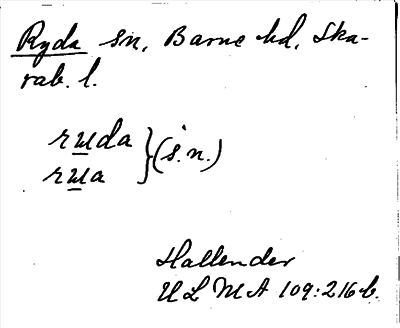 Ryda sn, Barne hd, Ska-
rab. l.
ruda
rua } (s.n.)
Hallender
ULMA 109:216 b.